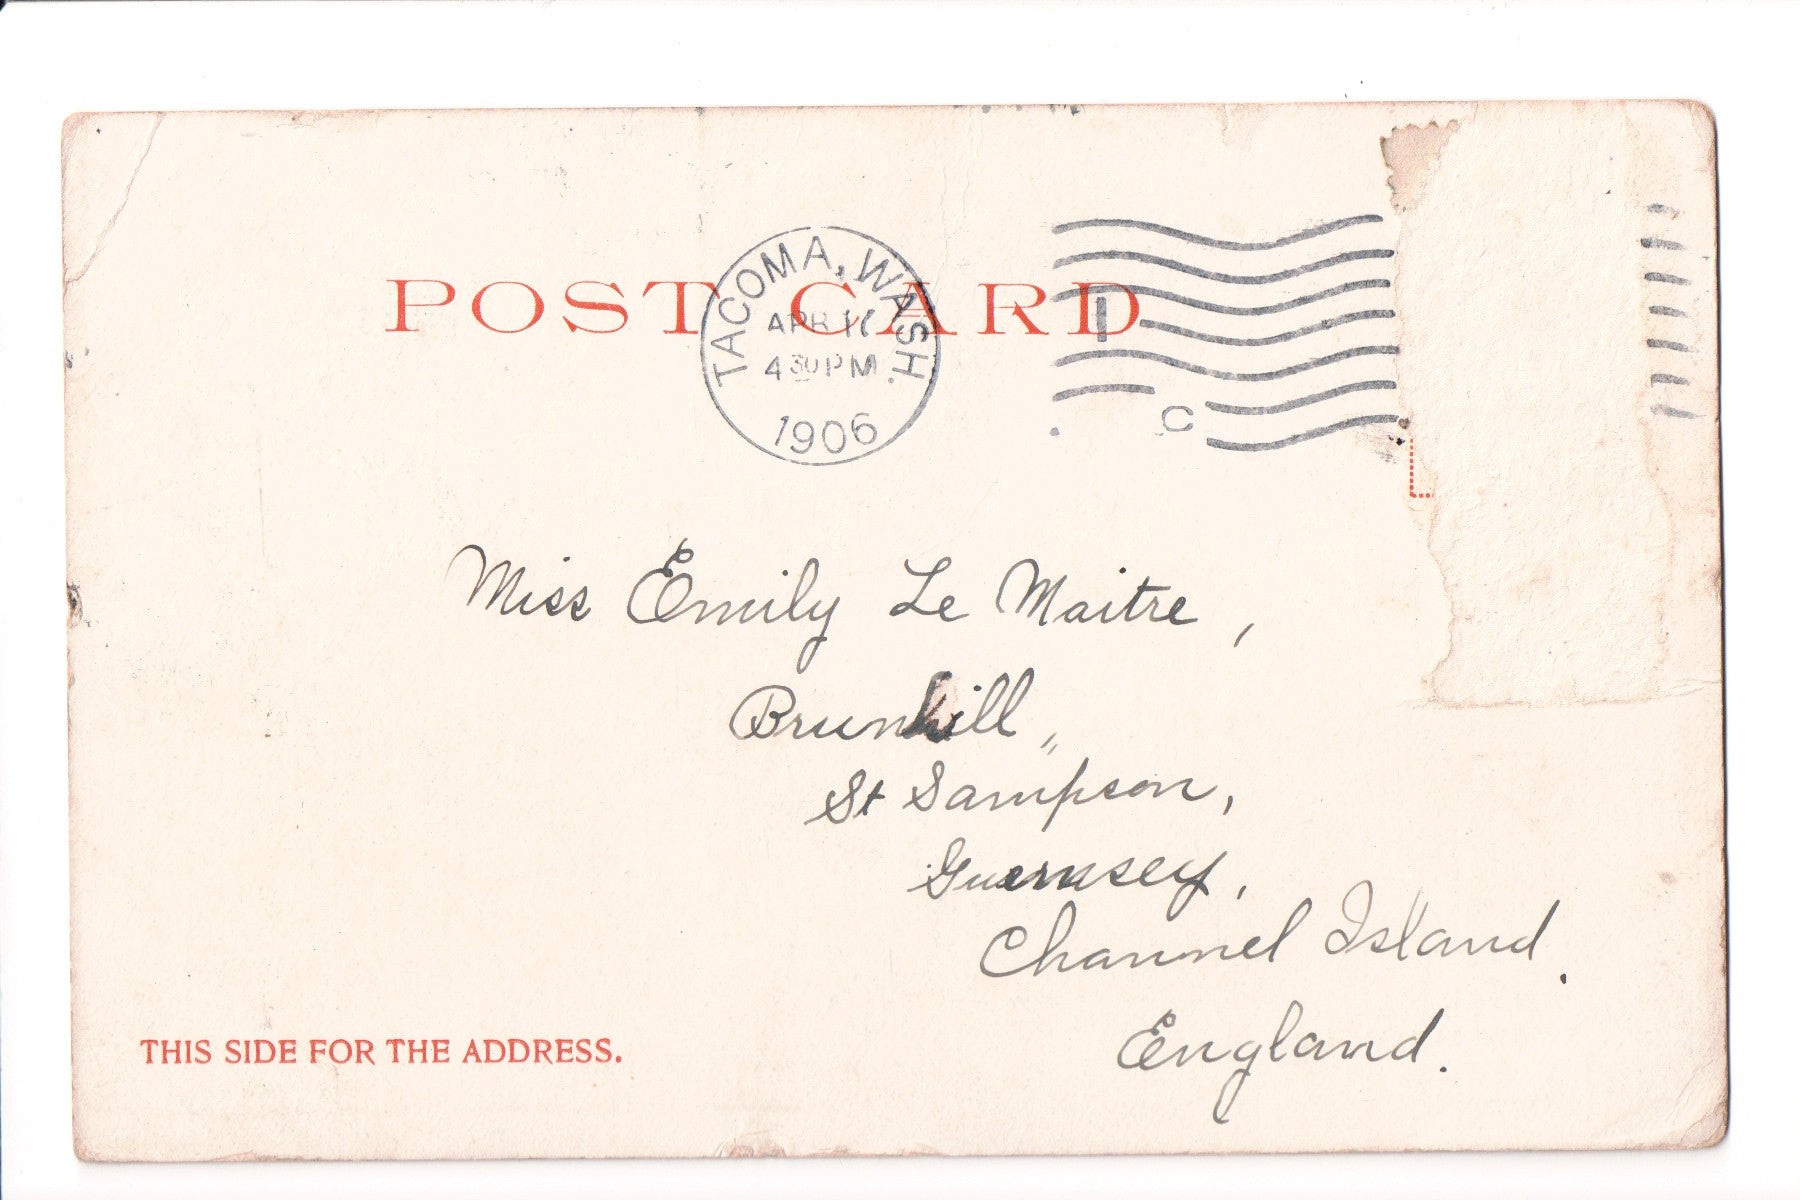 POST CARD
TACOMA, WASH.
APR
4 30 PM
1906
1
C
Miss Emily Le Maitre,
Brunhill,,
St Sampson,
Guernsey,
Channel Island.
England.
THIS SIDE FOR THE ADDRESS.